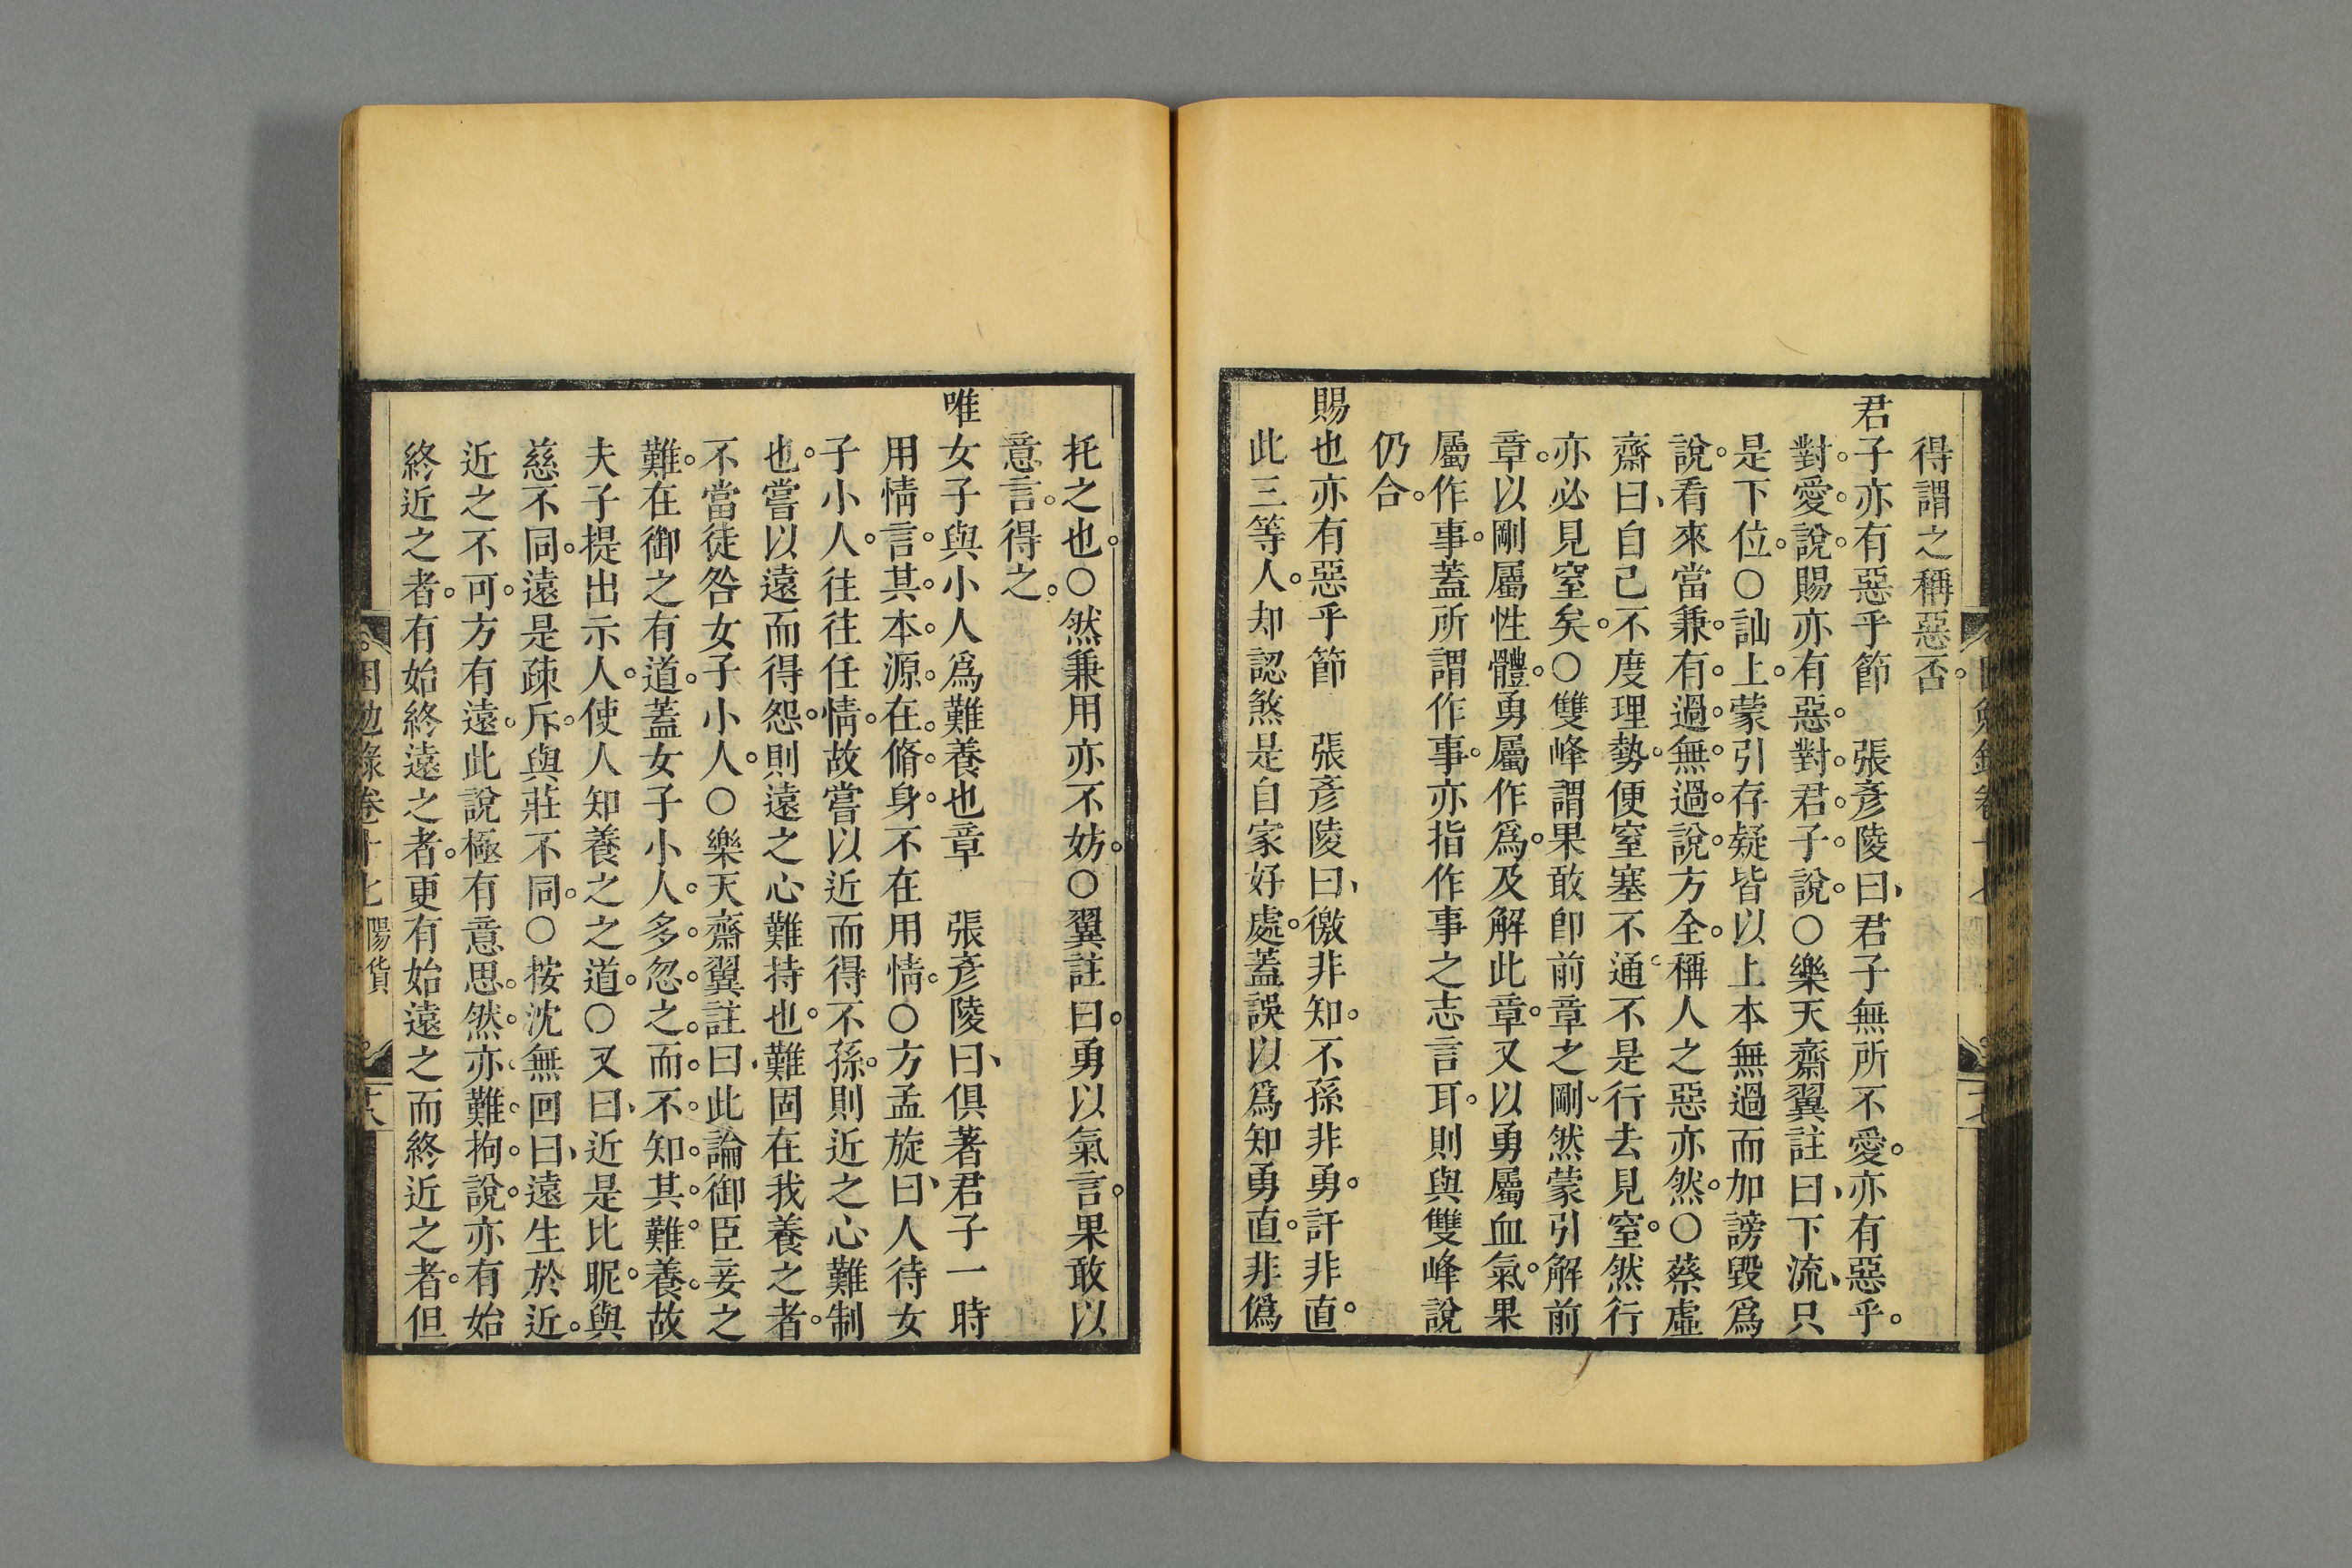 得謂之稱惡否。
君子亦有惡乎節　張彥陵曰、君子無所不愛。亦有惡乎。
對愛說賜亦有惡對君子說。○樂天齋翼註曰、下流、只
是下位。○訕上。蒙引存疑皆以上本無過而加謗毀爲
說。看來當兼有過無過說方全。稱人之惡亦然。○蔡虛
齋曰、自己不度理勢。便窒塞不通。不是行去見窒。然行
亦必見窒矣。○雙峰謂果敢卽前章之剛、然蒙引解前
章。以剛屬性體。勇屬作爲。及解此章。又以勇屬血氣。果
屬作事。蓋所謂作事。亦指作事之志言耳。則與雙峰說
仍合。
賜也亦有惡乎節　張彥陵曰、徼非知。不孫非勇。訐非直。
此三等人。却認煞是自家好處。蓋誤以爲知勇直。非僞
托之也。○然兼用亦不妨。○翼註曰。勇以氣言。果敢以
意言。得之。
唯女子與小人爲難養也章　張彥陵曰、俱著君子一時
用情言。其本源在脩身。不在用情。○方孟旋曰、人待女
子小人。往往任情。故嘗以近而得不孫。則近之心難制
也。嘗以遠而得怨。則遠之心難持也。難固在我養之者。
不當徒咎女子小人。○樂天齋翼註曰、此論御臣妾之
難。在御之有道。蓋女子小人。多忽之。而不知其難養。故
夫子提出示人。使人知養之之道。○又曰、近是比昵。與
慈不同。遠是疎斥。與莊不同。○按沈無回曰、遠生於近。
近之不可。方有遠。此說極有意思。然亦難拘說。亦有始
終近之者。有始終遠之者。更有始遠之而終近之者。但
困勉錄卷十七
陽貨
十八